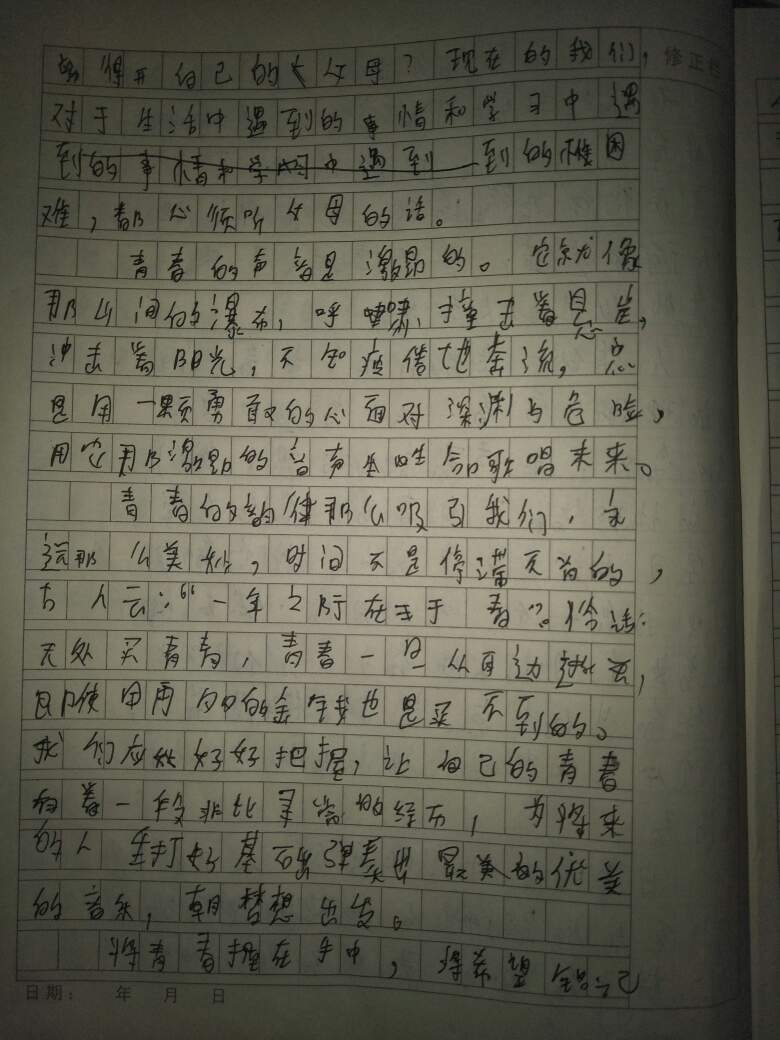 得开自己的父母？现在的我们， 修正栏
对于生活中遇到的事情和学习中遇
到的事情和学习中遇到到的难困
难，都必须听父母的话。
青春的声音是激励的。它就像
那山间的瀑布，呼啸，撞击着悬崖，
冲击着阳光，不知疲倦地奔流，总
是用一颗勇敢的心面对深渊与危险，
用它那激励的音声坐吟歌唱未来。
青春的旋律那么吸引我们，
那么美妙，时间不是停滞不前的，
古人云：“一年之际在于春”。俗话：
无处买青春，青春一旦从身边过去，
即使用再多的金钱也是买不到的。
我们应好好把握，让自己的青春
有着一段非比寻常的经历，为将来
的人生打好基础，弹奏出最美的优美
的音乐，朝梦想出发。
将青春握在手中，将希望
日期： 年 月 日